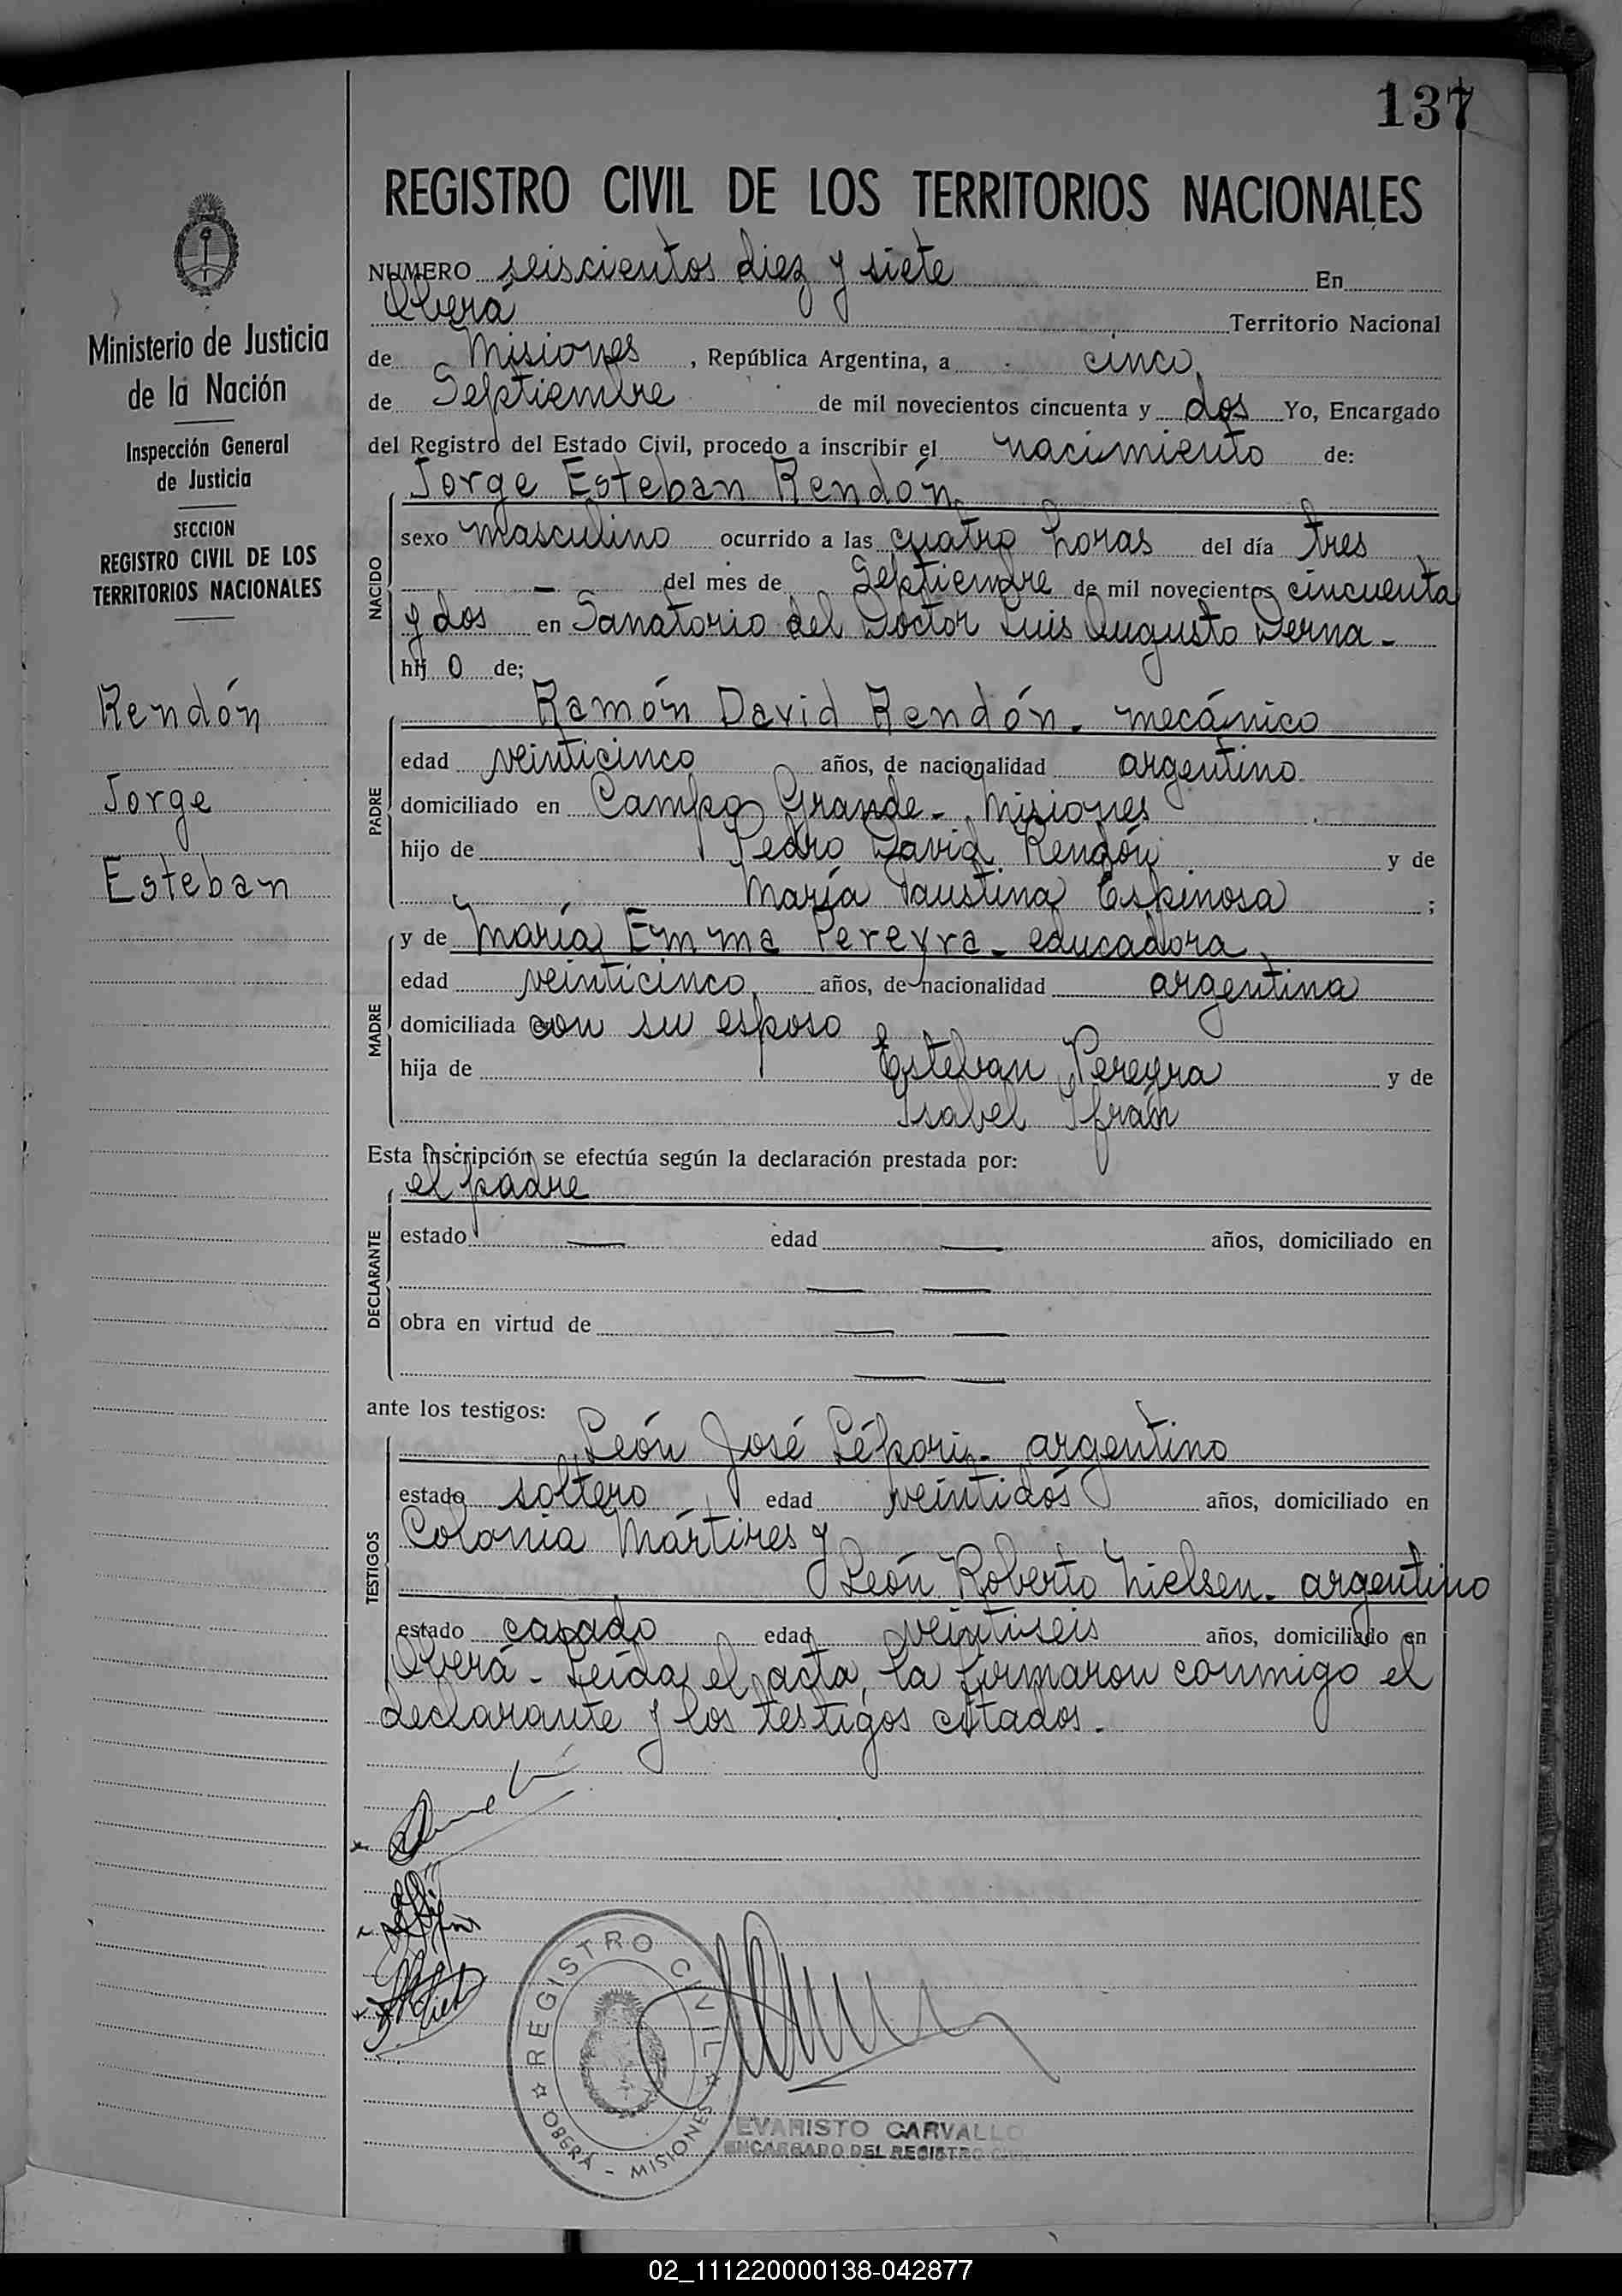 137
REGISTRO CIVIL DE LOS TERRITORIOS NACIONALES
Ministerio de Justicia
de la Nación
Inspección General
de Justicia
SECCION
REGISTRO CIVIL DE LOS
TERRITORIOS NACIONALES
Rendón
Jorge
Esteban
NUMERO seiscientos diez y siete En
Oberá Territorio Nacional
de Misiones, República Argentina, a cinco
de Septiembre de mil novecientos cincuenta y dos Yo, Encargado
del Registro del Estado Civil, procedo a inscribir el nacimiento de:
NACIDO
Jorge Esteban Rendón
sexo masculino ocurrido a las cuatro horas del día tres
— del mes de Septiembre de mil novecientos cincuenta
y dos en Sanatorio del Doctor Luis Augusto Derna -
hij o de;
PADRE
Ramón David Rendón - mecánico
edad veinticinco años, de nacionalidad argentino
domiciliado en Campo Grande - Misiones
hijo de Pedro David Rendón y de
María Faustina Espinosa ;
MADRE
y de María Emma Pereyra - educadora
edad veinticinco años, de nacionalidad argentina
domiciliada con su esposo
hija de Esteban Pereyra y de
Isabel Ifrán
Esta inscripción se efectúa según la declaración prestada por:
DECLARANTE
el padre
estado — edad — años, domiciliado en
— —
obra en virtud de — —
— —
ante los testigos:
TESTIGOS
León José Lépori - argentino
estado soltero edad veintidós años, domiciliado en
Colonia Mártires y
León Roberto Nielsen - argentino
estado casado edad veintiseis años, domiciliado en
Oberá - Leída el acta, la firmaron conmigo el
declarante y los testigos citados.
REGISTRO CIVIL
OBERÁ - MISIONES
EVARISTO CARVALLO
ENCARGADO DEL REGISTRO CIVIL
02_111220000138-042877